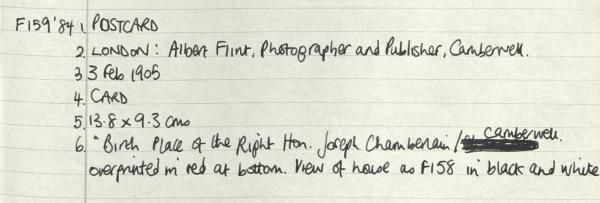 F159'84 1. POSTCARD
2. LONDON: Albert Flint, Photographer and Publisher, Camberwell.
3 3 Feb 1905
4. CARD
5. 13.8 x 9.3 cms
6. "Birth Place of the Right Hon. Joseph Chamberlain / Camberwell.
overprinted in red at bottom. View of house as F158 in black and white